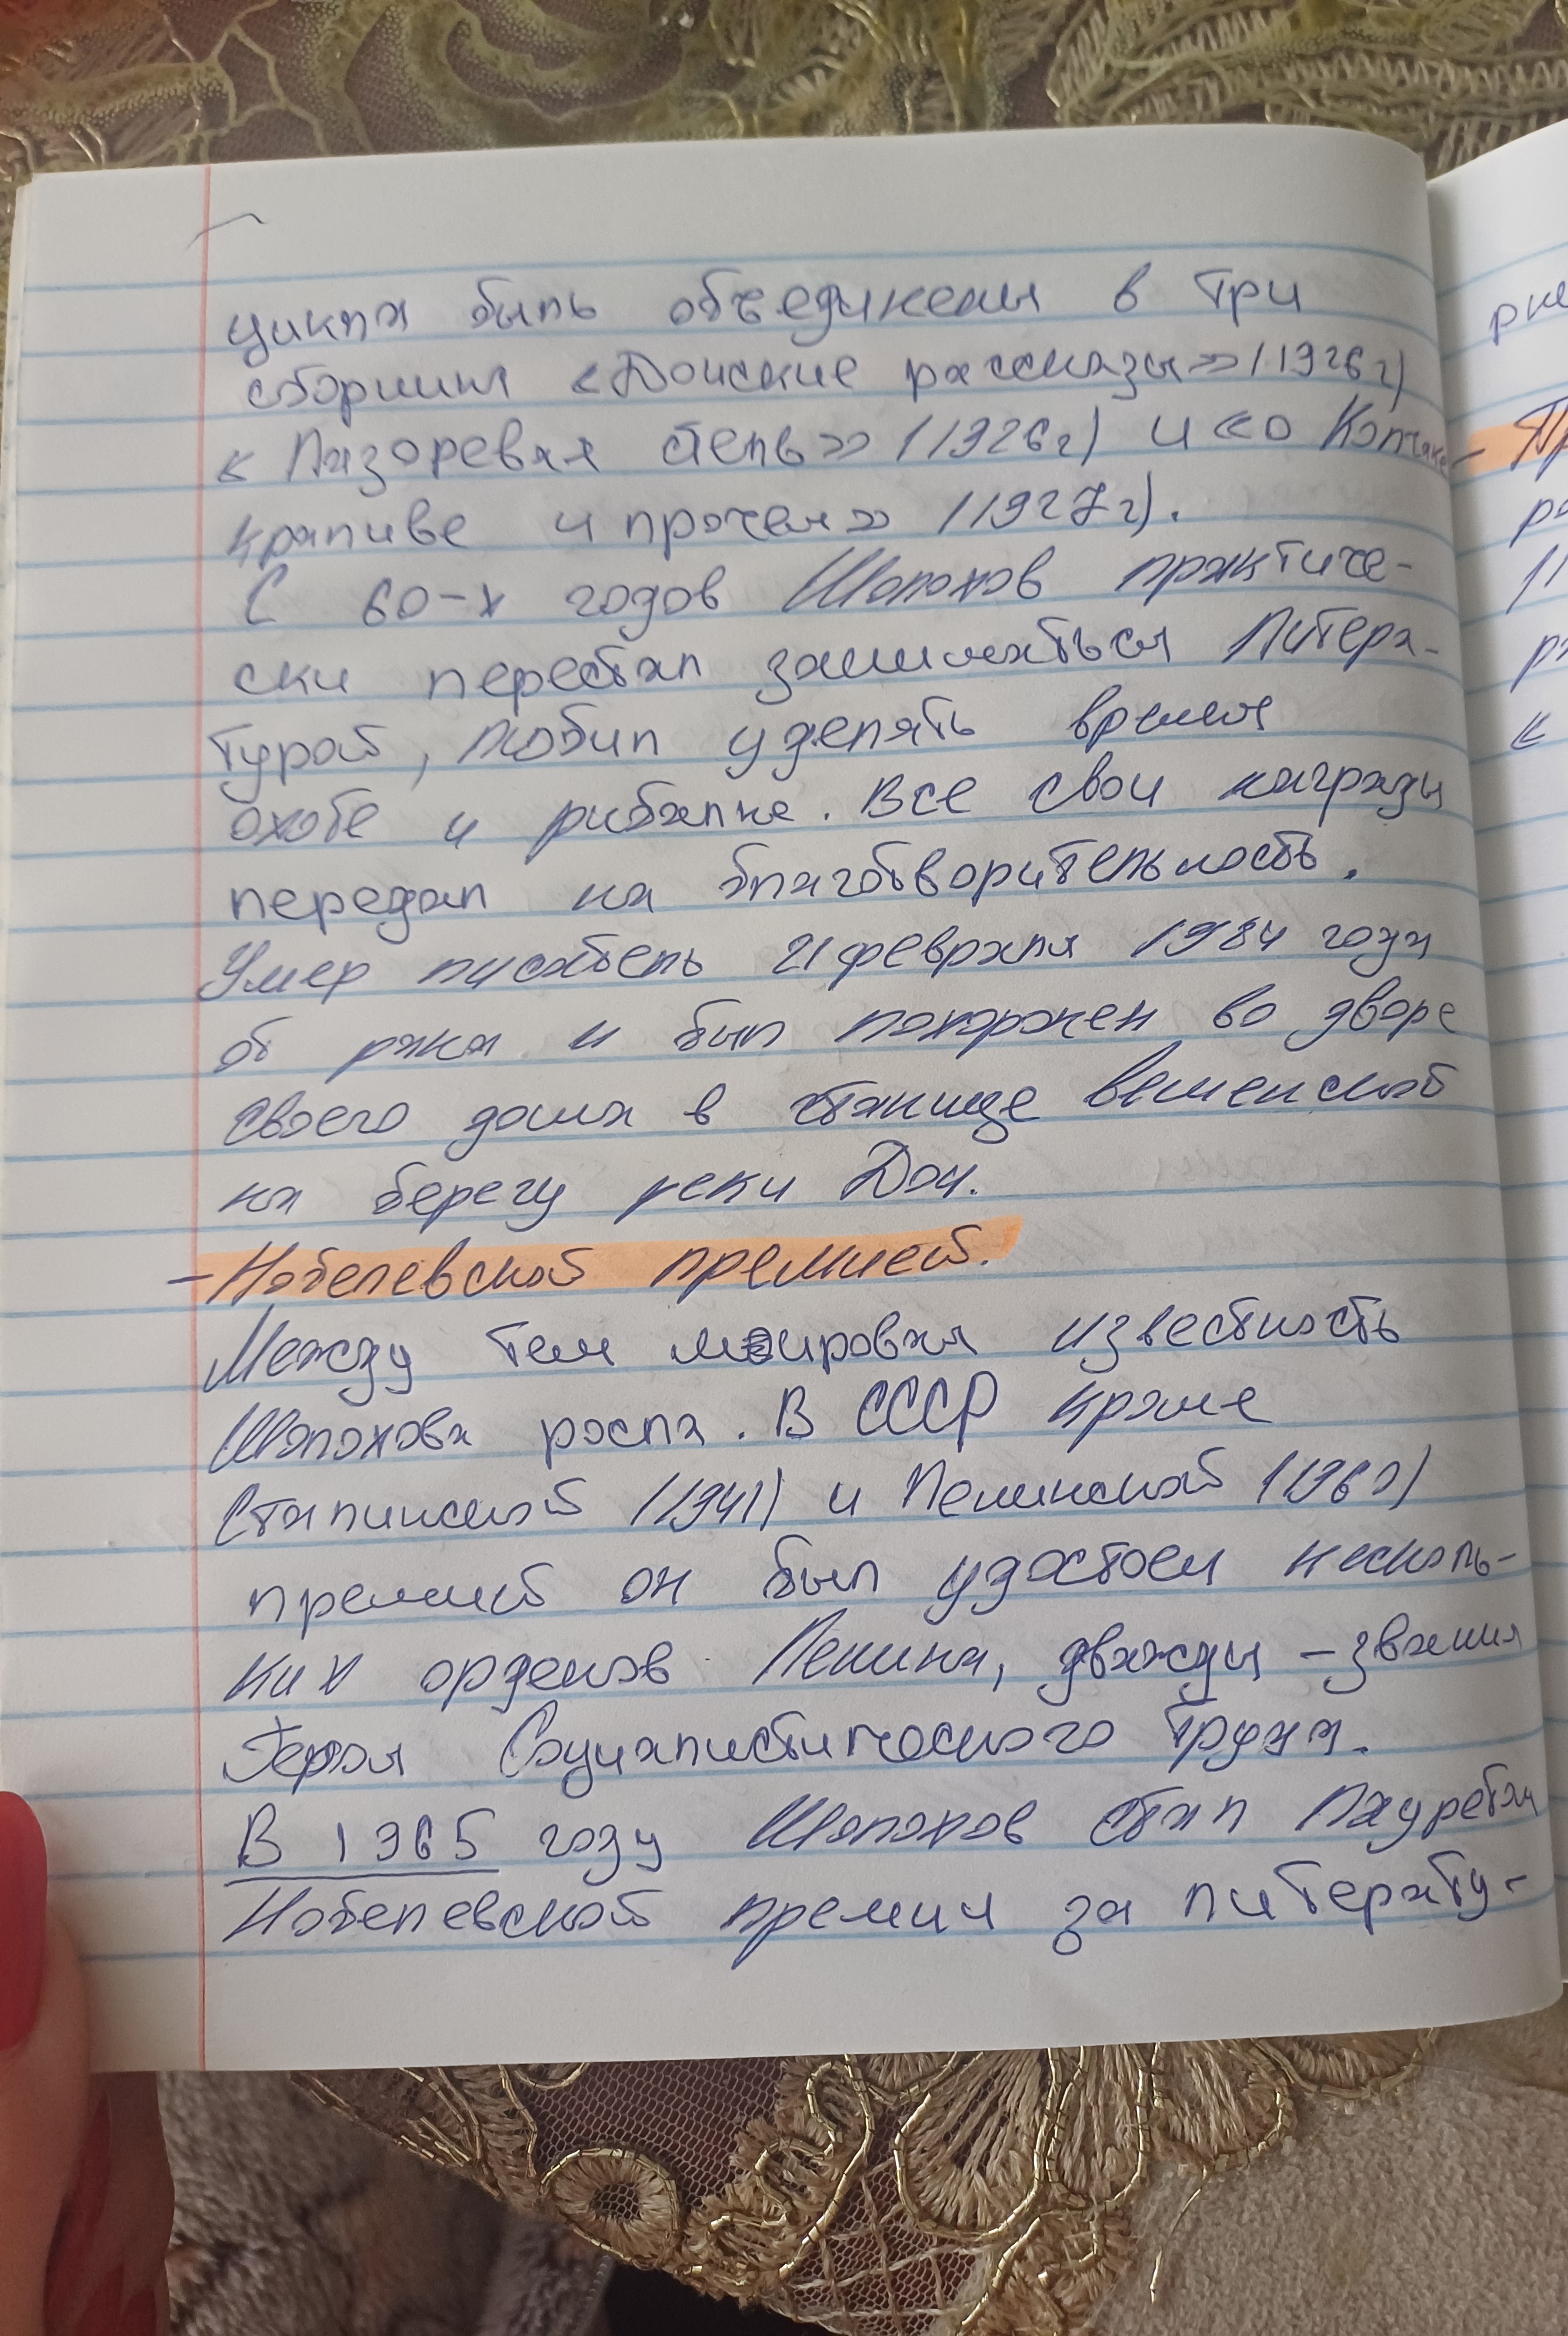 цикла быль объединены в три
сборника «Донские рассказы» (1926г)
«Лазоревая степь» (1926г) и «О Колчаке
крапиве и прочем» (1927г).
С 60-х годов Шолохов практиче-
ски перестал заниматься Литера-
турой, любил уделять время
охоте и рибалке. Все свои награды
передал на благотворительность.
Умер писатель 21 февраля 1984 года
от рака и был похоронен во дворе
своего дома в станице вешенской
на берегу реки Дон.
- Нобелевской премией.
Между тем мировая известность
Шолохова росла. В СССР кроме
Сталинской (1941) и Ленинской (1960)
премией он был удостоен несколь-
ких орденов Ленина, дважды - звания
Героя Социалистического труда.
В 1965 году Шолохов стал Лауретом
Нобелевской премии за литерату-
«